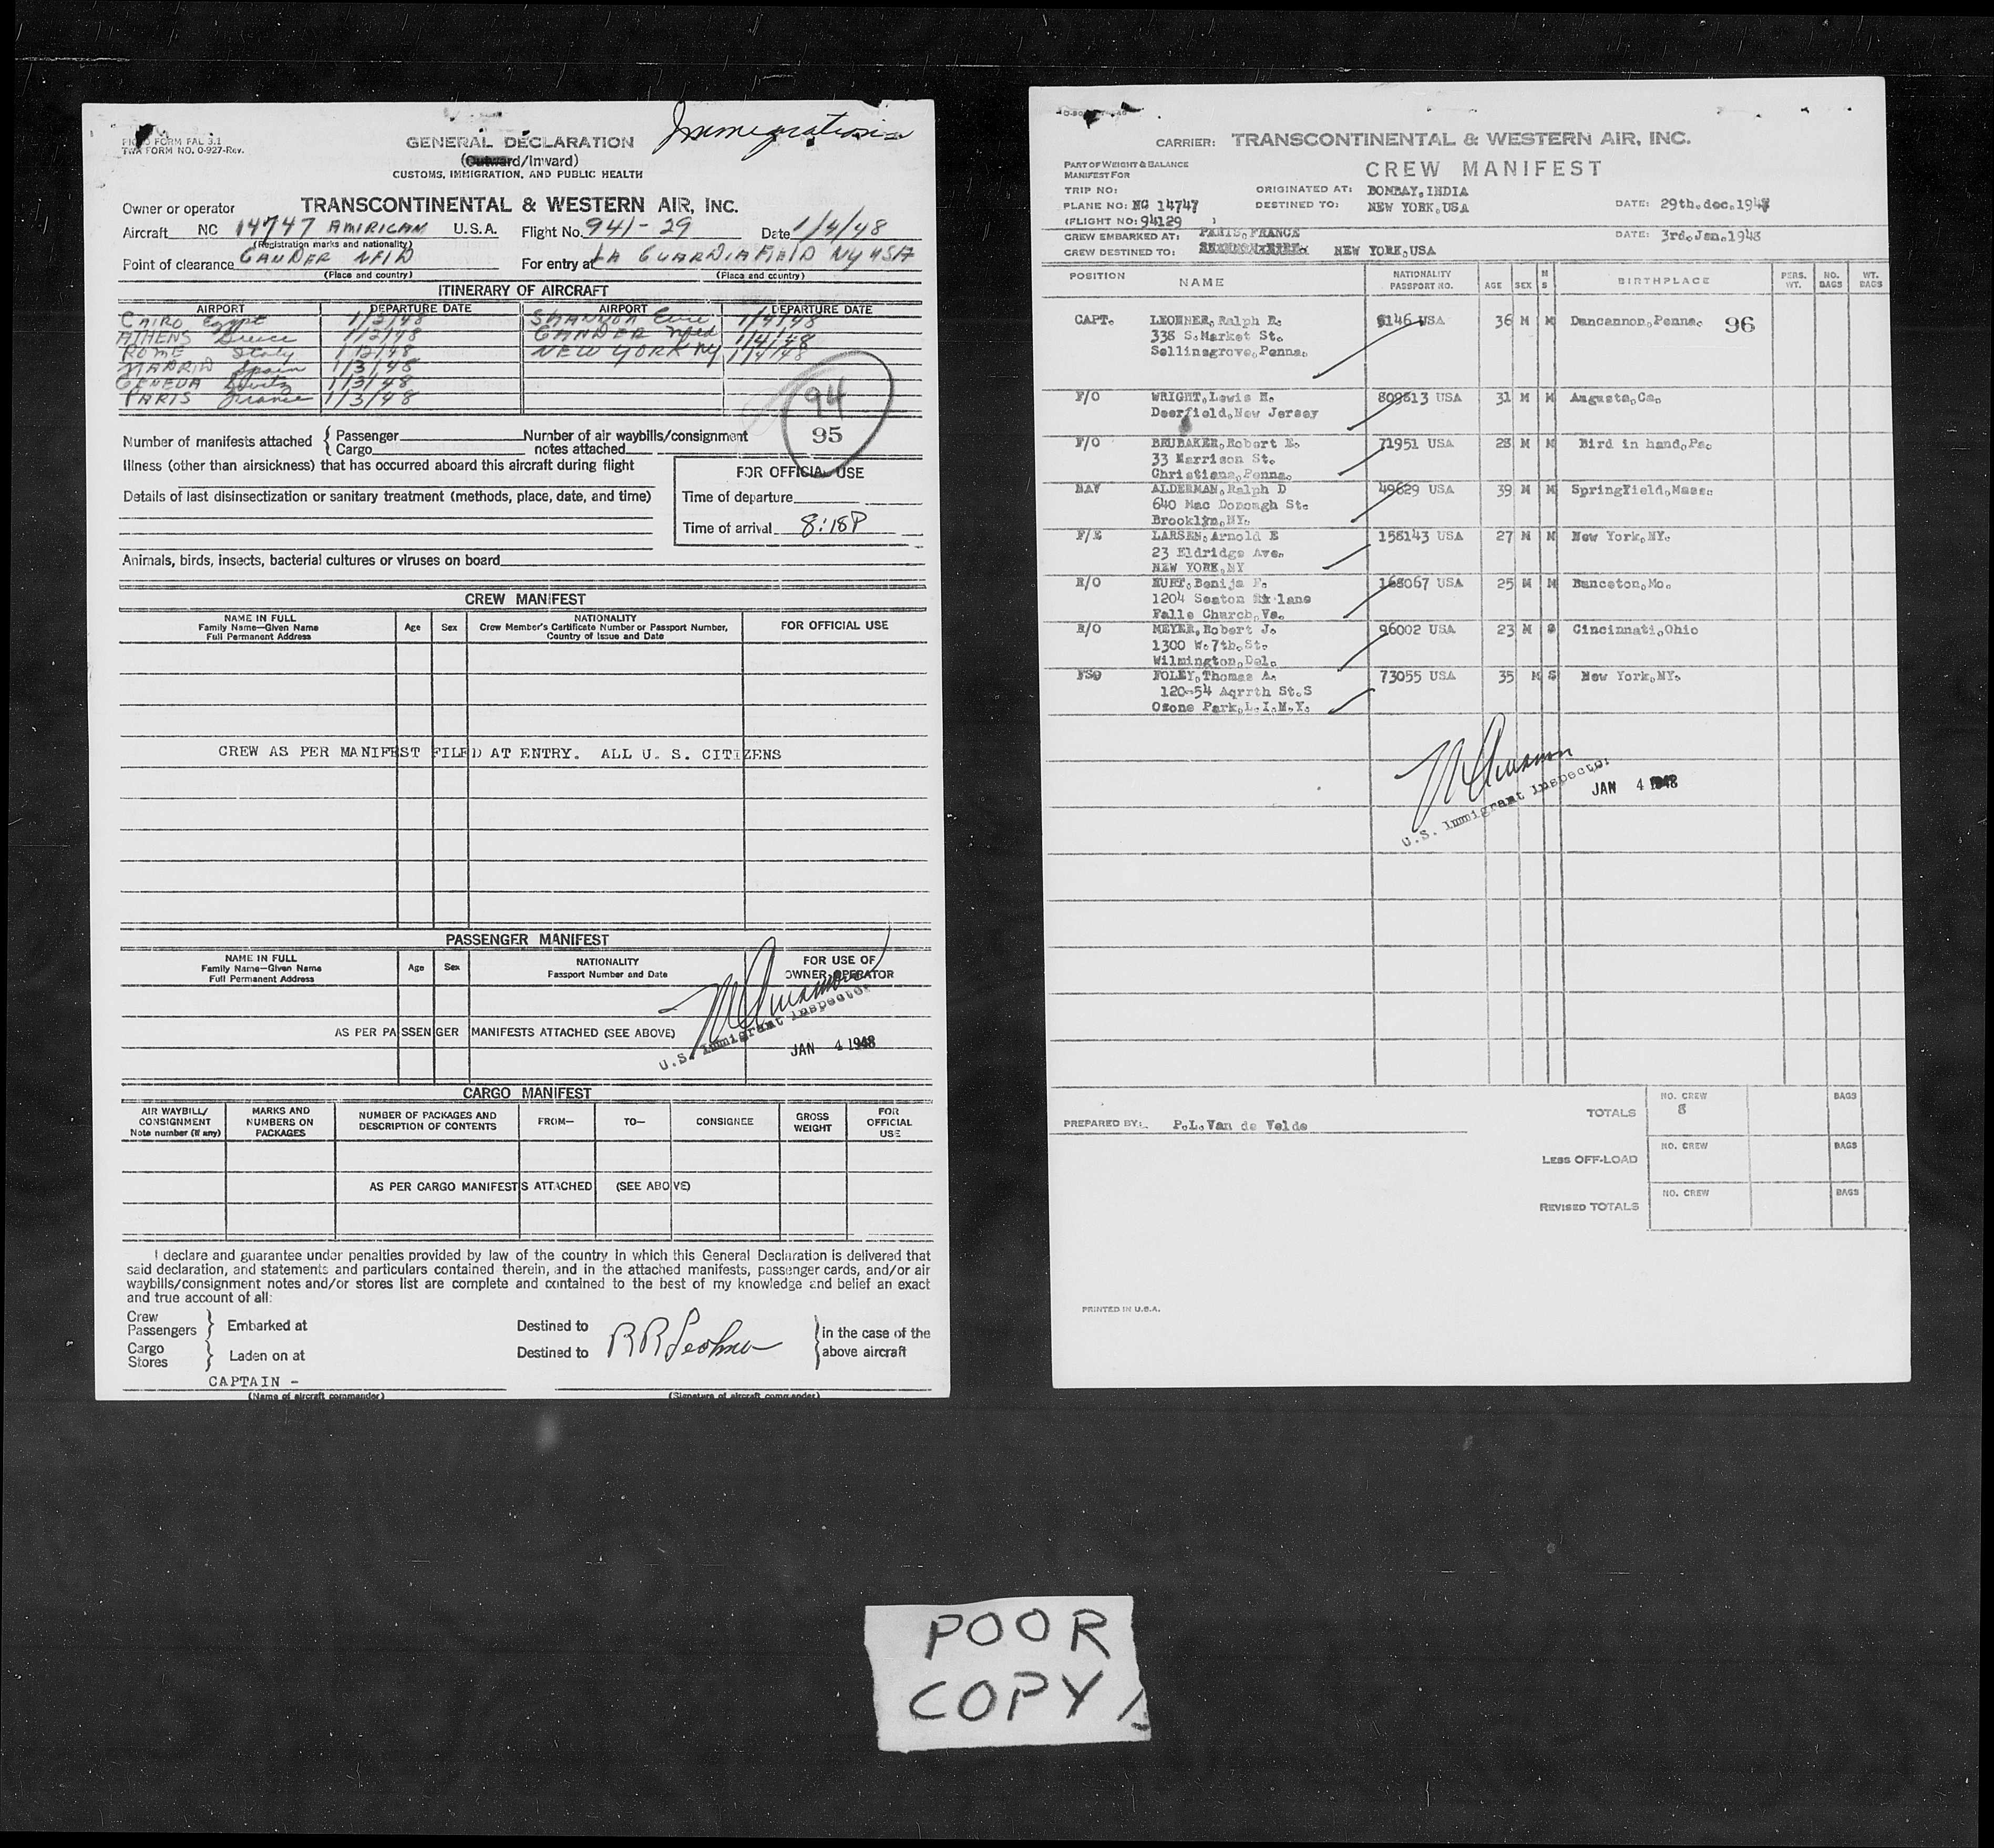 Immigration
PICAO FORM FAL 3.1
TWA FORM NO. O-927-Rev.
GENERAL DECLARATION
(Outward/Inward)
CUSTOMS, IMMIGRATION, AND PUBLIC HEALTH
Owner or operator TRANSCONTINENTAL & WESTERN AIR, INC.
Aircraft NC 14747 AMIRICAN U.S.A. Flight No. 941-29 Date 1/4/48
(Registration marks and nationality)
Point of clearance GANDER NFLD For entry at LA GUARDIA FIELD NY USA
(Place and country) (Place and country)
ITINERARY OF AIRCRAFT
AIRPORT DEPARTURE DATE AIRPORT DEPARTURE DATE
CAIRO Egypt 1/2/48 SHANNON Eire 1/4/48
ATHENS Greece 1/2/48 GANDER Nfld 1/4/48
ROME Italy 1/2/48 NEW YORK NY 1/4/48
MADRID Spain 1/3/48
GENEVA Switz 1/3/48
PARIS France 1/3/48
94
95
Number of manifests attached { Passenger Number of air waybills/consignment
Cargo notes attached
Illness (other than airsickness) that has occurred aboard this aircraft during flight
FOR OFFICIAL USE
Details of last disinsectization or sanitary treatment (methods, place, date, and time)
Time of departure
Time of arrival 8:18P
Animals, birds, insects, bacterial cultures or viruses on board
CREW MANIFEST
NAME IN FULL
Family Name—Given Name
Full Permanent Address
Age Sex
NATIONALITY
Crew Member's Certificate Number or Passport Number,
Country of Issue and Date
FOR OFFICIAL USE
CREW AS PER MANIFEST FILED AT ENTRY. ALL U. S. CITIZENS
PASSENGER MANIFEST
NAME IN FULL
Family Name—Given Name
Full Permanent Address
Age Sex
NATIONALITY
Passport Number and Date
FOR USE OF
OWNER OPERATOR
AS PER PASSENGER MANIFESTS ATTACHED (SEE ABOVE)
U.S. Immigrant Inspector
JAN 4 1948
CARGO MANIFEST
AIR WAYBILL/
CONSIGNMENT
Note number (if any)
MARKS AND
NUMBERS ON
PACKAGES
NUMBER OF PACKAGES AND
DESCRIPTION OF CONTENTS
FROM— TO— CONSIGNEE
GROSS
WEIGHT
FOR
OFFICIAL
USE
AS PER CARGO MANIFESTS ATTACHED (SEE ABOVE)
I declare and guarantee under penalties provided by law of the country in which this General Declaration is delivered that
said declaration, and statements and particulars contained therein, and in the attached manifests, passenger cards, and/or air
waybills/consignment notes and/or stores list are complete and contained to the best of my knowledge and belief an exact
and true account of all:
Crew
Passengers } Embarked at Destined to
Cargo
Stores } Laden on at Destined to
RR Leohner
} in the case of the
above aircraft
CAPTAIN -
(Name of aircraft commander) (Signature of aircraft commander)
CARRIER: TRANSCONTINENTAL & WESTERN AIR, INC.
PART OF WEIGHT & BALANCE
MANIFEST FOR
CREW MANIFEST
TRIP NO: ORIGINATED AT: BOMBAY, INDIA
PLANE NO: NC 14747 DESTINED TO: NEW YORK, USA DATE: 29th.dec.1947
(FLIGHT NO: 94129 )
CREW EMBARKED AT: PARIS, FRANCE DATE: 3rd.Jan.1948
CREW DESTINED TO: NEW YORK, USA
POSITION NAME NATIONALITY PASSPORT NO. AGE SEX M S BIRTHPLACE PERS. WT. NO. BAGS WT. BAGS
CAPT. LEOHNER, Ralph R. 6146 USA 36 M M Duncannon, Penna. 96
338 S.Market St.
Sellinsgrove, Penna.
F/O WRIGHT, Lewis H. 809613 USA 31 M M Augusta, Ca.
Deerfield, New Jersey
F/O BRUBAKER, Robert E. 71951 USA 28 M M Bird in hand, Pa.
33 Harrison St.
Christiana, Penna.
NAV ALDERMAN, Ralph D 49629 USA 39 M M Springfield, Mass.
640 Mac Donough St.
Brooklyn, NY.
F/E LARSEN, Arnold E 158143 USA 27 M M New York, NY.
23 Eldridge Ave.
NEW YORK, NY
R/O HURT, Benija F. 168067 USA 25 M M Bunceton, Mo.
1204 Seaton lane
Falls Church, Va.
R/O MEYER, Robert J. 96002 USA 23 M S Cincinnati, Ohio
1300 W. 7th. St.
Wilmington, Del.
FSO FOLEY, Thomas A. 73055 USA 35 M S New York, NY.
120-54 Aqrrth St.S
Ozone Park, L.I.N.Y.
U.S. Immigrant Inspector
JAN 4 1948
TOTALS NO. CREW 8 BAGS
PREPARED BY: P.L. Van de Velde
LESS OFF-LOAD NO. CREW BAGS
REVISED TOTALS NO. CREW BAGS
PRINTED IN U.S.A.
POOR
COPY